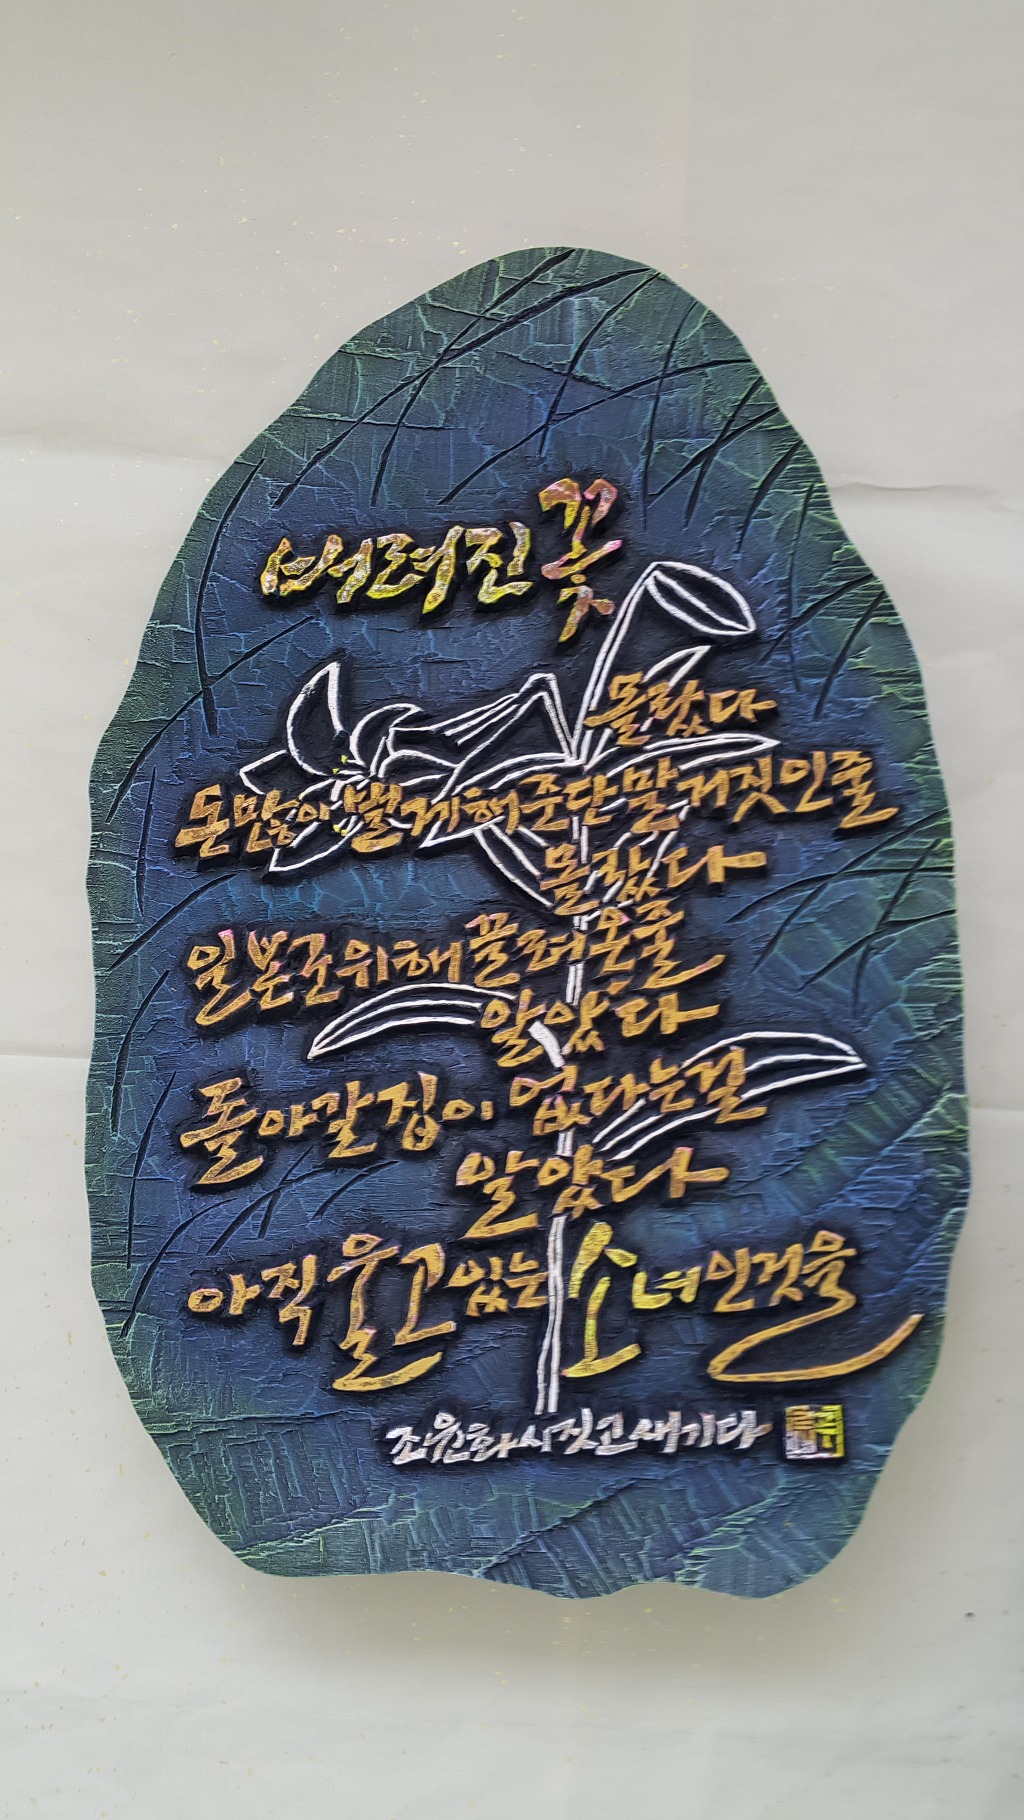 버려진 꽃
몰랐다
돈 많이 벌게 해준단 말 거짓인 줄
몰랐다
일본군 위해 끌려온 줄
알았다
돌아갈 집이 없다는 걸
알았다
아직 울고 있는 소녀인 것을
조원화 시 짓고 새기다